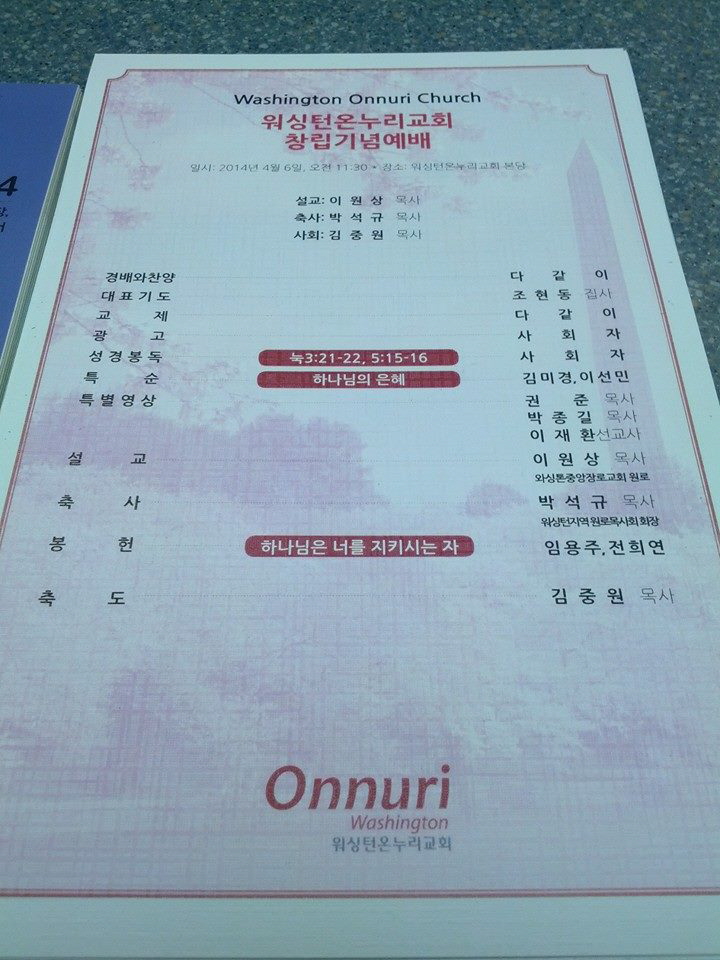 Washington Onnuri Church
워싱턴온누리교회
창립기념예배
일시: 2014년 4월 6일, 오전 11:30 * 장소: 워싱턴온누리교회 본당
설교: 이 원 상 목사
축사: 박 석 규 목사
사회: 김 중 원 목사
경배와찬양 다 같 이
대표기도 조 현 동 집사
교 제 다 같 이
광 고 사 회 자
성경봉독 눅3:21-22, 5:15-16 사 회 자
특 순 하나님의 은혜 김미경,이선민
특별영상 권 준 목사
박 종 길 목사
이 재 환선교사
설 교 이 원 상 목사
와싱톤중앙장로교회 원로
축 사 박 석 규 목사
워싱턴지역 원로목사회 회장
봉 헌 하나님은 너를 지키시는 자 임용주,전희연
축 도 김 중 원 목사
Onnuri
Washington
워싱턴온누리교회
4